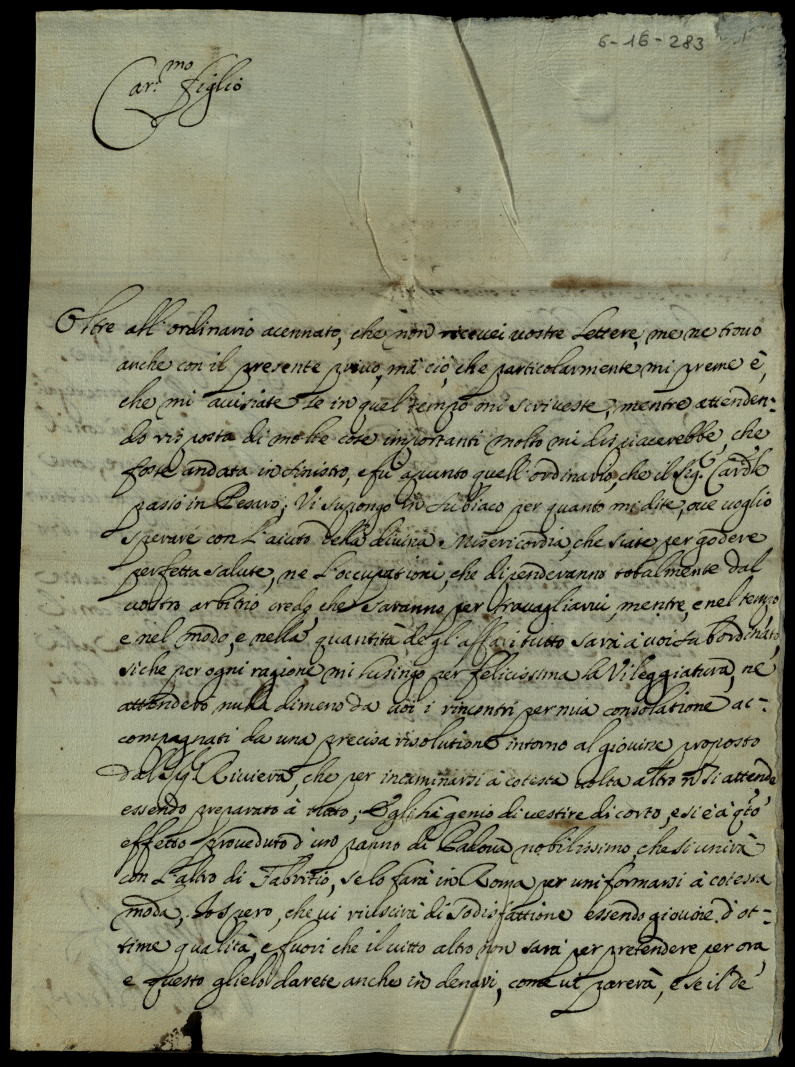 6-16-283
Car.mo Figlio
Oltre all'ordinario acennato, che non riceuei uostre Lettere, me ne trouo
anche con il presente priuo, mà ciò, che particolarmente mi preme è,
che mi auisiate se in quel tempo mi scriueste, mentre attenden-
do risposta di molte cose importanti molto mi dispiacerebbe, che
foste andata in sinistro, e fù apunto quell'ordinario, che il Sig.r Cardle
passò in Pesaro; Vi supongo in Subiaco per quanto mi dite, oue uoglio
sperare con L'aiuto della diuina Misericordia, che siate per godere
perfetta salute, ne L'occupationi, che dipenderanno totalmente dal
uostro arbitrio credo che saranno per trauagliarui, mentre, e nel tempo
e nel modo, e nella quantità degl'affari tutto sarà à uoi subordinato,
siche per ogni ragione mi lusingo per felicissima la Vileggiatura, ne
attendero nulla dimeno da uoi i rincontri per mia consolatione ac-
compagnati da una precisa risolutione intorno al giouine proposto
dal Sig.r Riuiera, che per incaminarsi à cotesta uolta altro n̄ si attende
essendo preparato à tutto; Egli hà genio di uestire di corto, e si è à q̄to
effetto proueduto d'uno panno di Padoua nobilissimo, che si unirà
con L'altro di Fabritio, se lo farà in Roma per uniformarsi à cotesta
moda, Io spero, che ui riuscirà di sodisfattione essendo giouine d'ot-
time qualità, e fuori che il uitto altro non sarà per pretendere per ora,
e questo glielo darete anche in denari, come ui parerà, e se il de